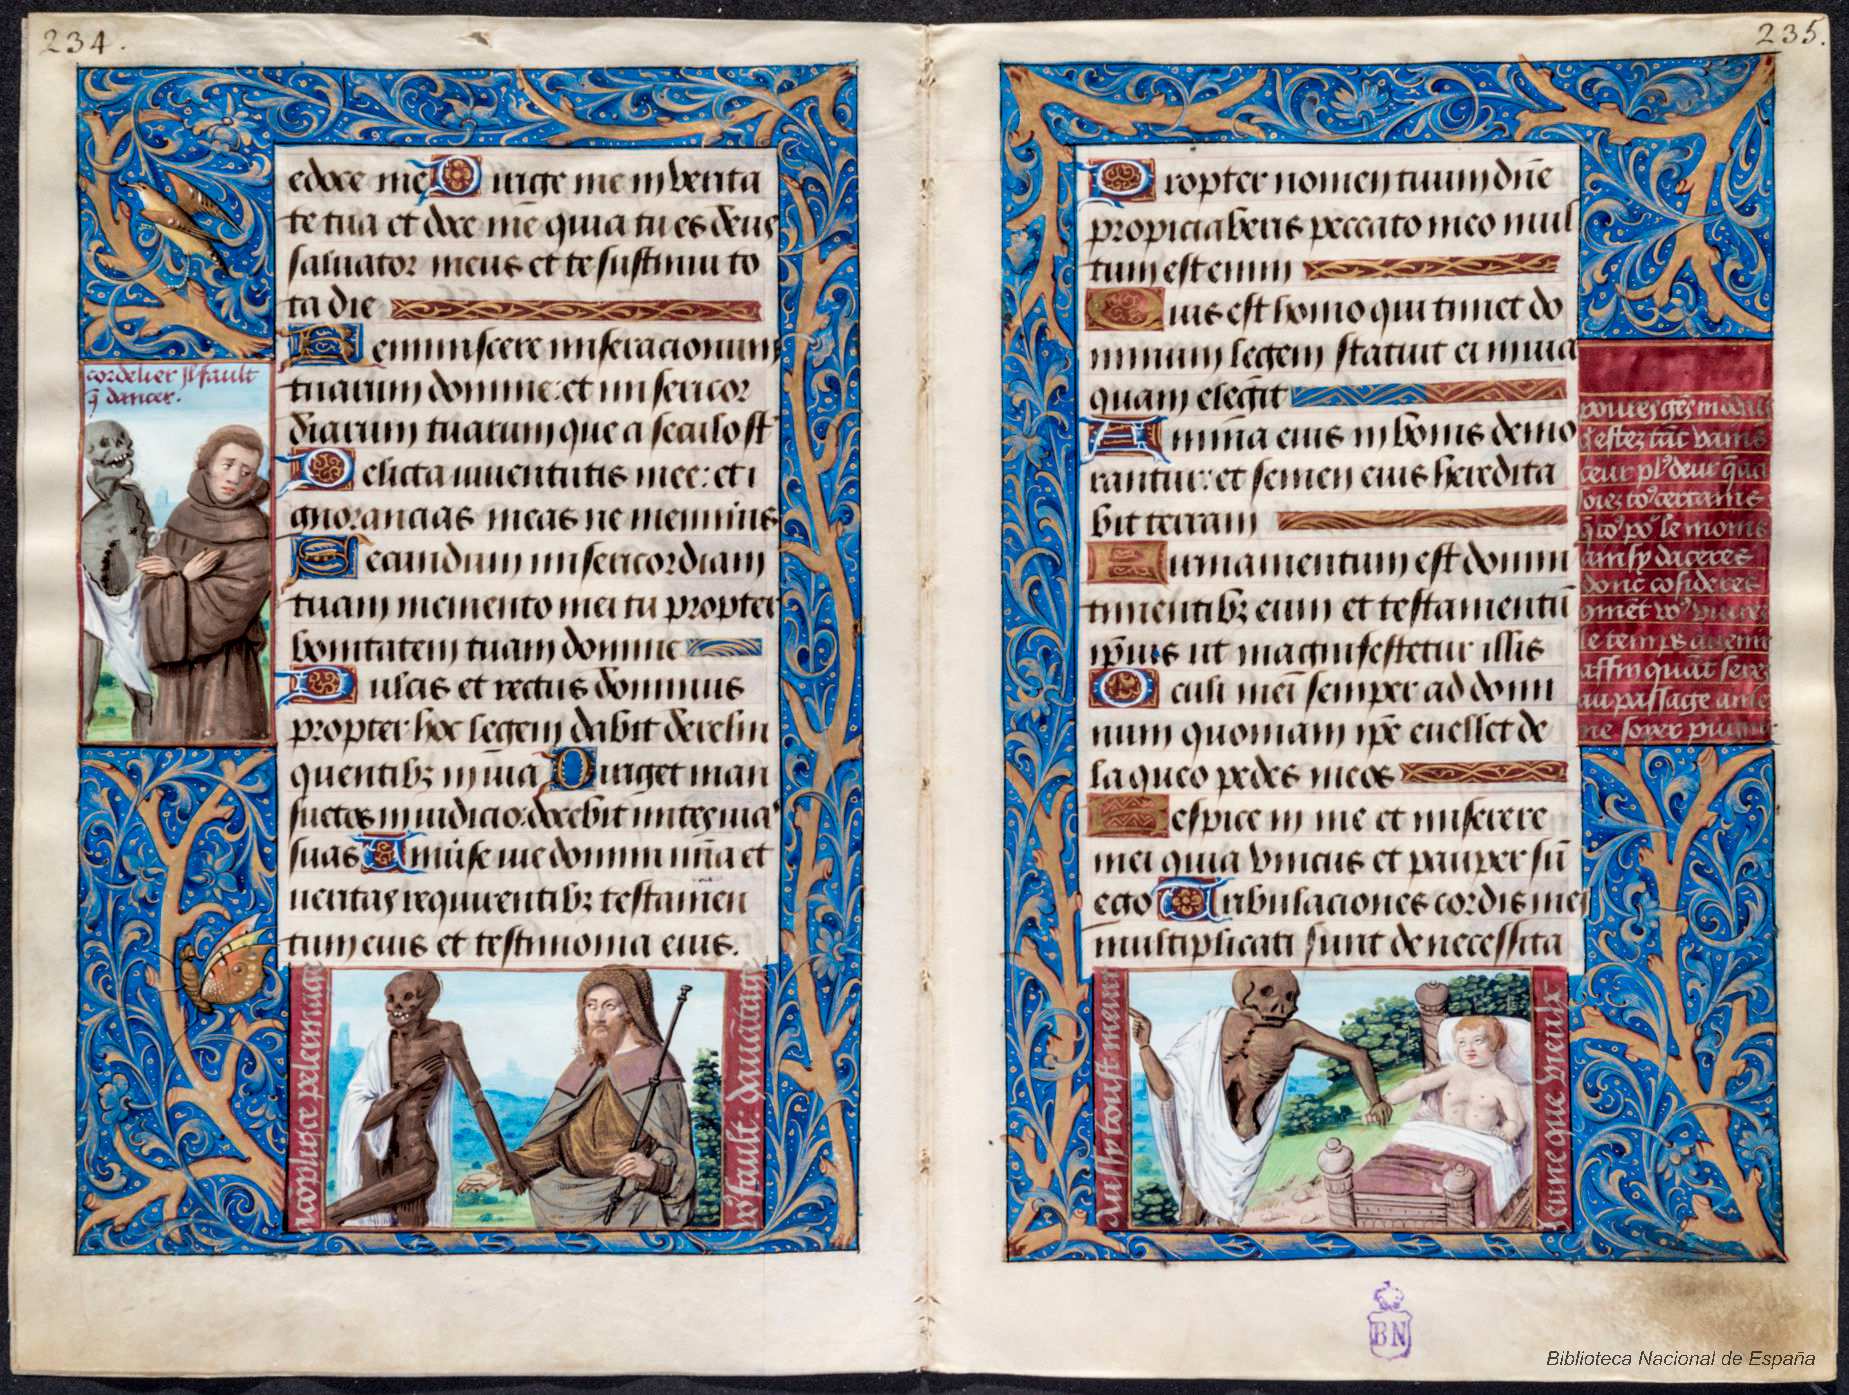 234.
edoce me Dirige me in verita
te tua et doce mē quia tu es deus
saluator meus et te sustinui to
ta die
Reminiscere miseracionum
tuarum domine: et misericor
diarum tuarum que a seculo st̄
Delicta iuuentutis mee: et i
gnorancias meas ne memineris
Secundum misericordiam
tuam memento mei tu propter
bonitatem tuam domine
Dulcis et rectus dominus
propter hoc legem dabit derelin
quentibꝫ in uia Diriget man
suetos in iudicio: docebit mites uias
suas Uniuẜse uie domini mīa et
ueritas requirentibꝫ testamen
tum eius et testimonia eius.
cordelier il fault
q̄ dancer.
acōplyr ce pelerinage
vo9 fault. dauātage
235.
Propter nomen tuum dn̄e
propiciaberis peccato meo mul
tum est enim
Quis est homo qui timet do
minum legem statuit ei in uia
quam elegit
Anima eius in bonis demo
rantur: et semen eius heredita
bit terram
Firmamentum est domin
timentibꝫ eum et testamentū
ip̄ius ut magnifestetur illis
Oculi mei semper ad domi
num quoniam ip̄e euellet de
laqueo pedes meos
Respice in me et miserere
mei quia vnicus et pauper sū
ego Tribulaciones cordis mei
multiplicati sunt de necessita
donc cōsideres
le temps
au passage
Aussy toust meurt
jeune que vieulx
BN
Biblioteca Nacional de España